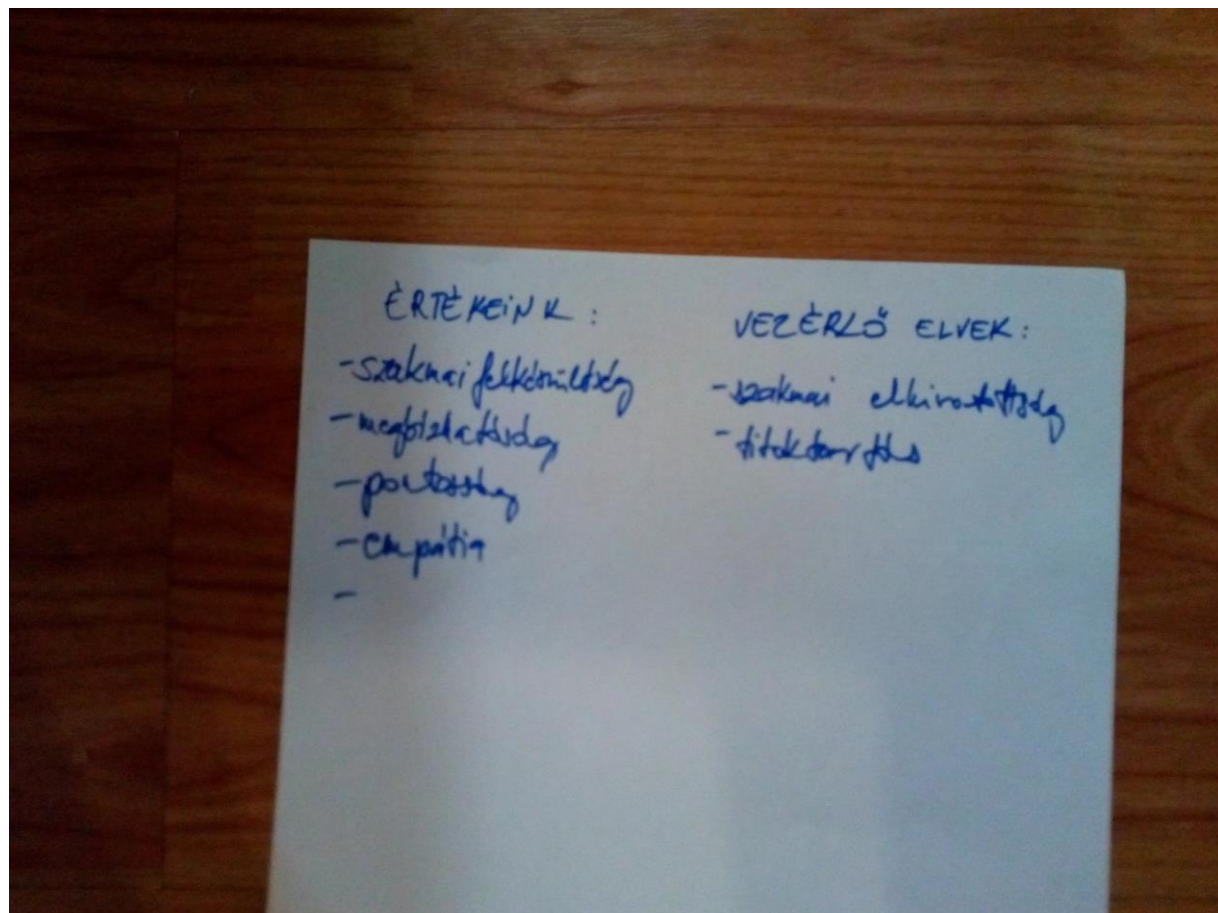 ÉRTÉKEINK:
-szakmai felkészültség
-megbízhatóság
-pontosság
-empátia
-
VEZÉRLŐ ELVEK:
-szakmai elhivatottság
-titoktartás